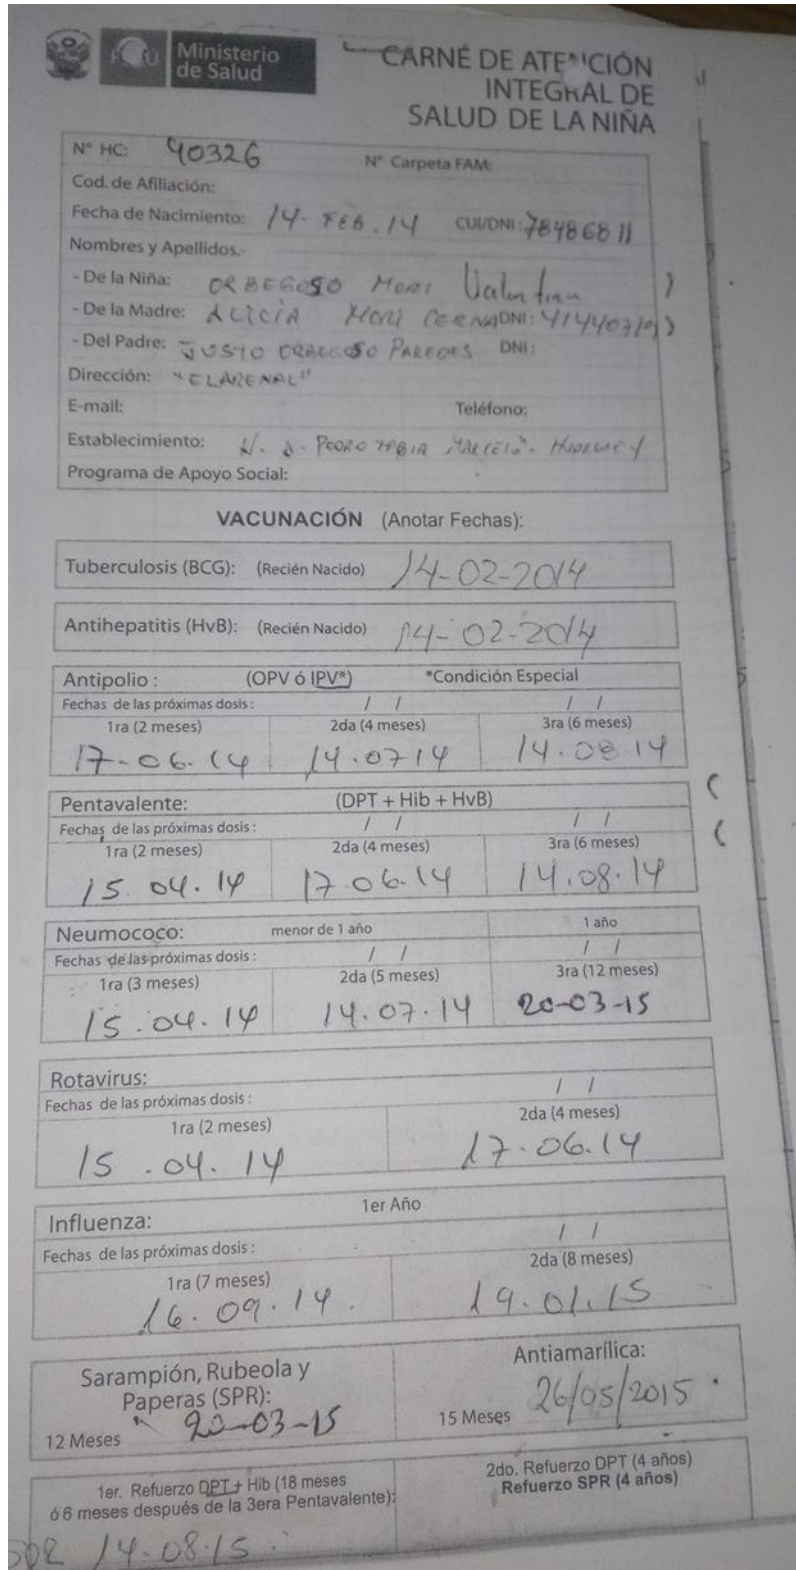 Ministerio
de Salud
CARNÉ DE ATENCIÓN
INTEGRAL DE
SALUD DE LA NIÑA
N° HC: 40326 N° Carpeta FAM:
Cod. de Afiliación:
Fecha de Nacimiento: 14. FEB. 14 CUI/DNI: 78486811
Nombres y Apellidos.-
- De la Niña: ORBEGOSO Mori Valentina
- De la Madre: ALICIA MORI CERNA DNI:
- Del Padre: JUSTO ORBEGOSO PAREDES DNI:
Dirección: "EL ARENAL"
E-mail: Teléfono:
Establecimiento: PEDRO
Programa de Apoyo Social:
VACUNACIÓN (Anotar Fechas):
Tuberculosis (BCG): (Recién Nacido) 14-02-2014
Antihepatitis (HvB): (Recién Nacido) 14-02-2014
Antipolio : (OPV ó IPV*) *Condición Especial
Fechas de las próximas dosis : / / / /
1ra (2 meses) 2da (4 meses) 3ra (6 meses)
17-06-14 14.07 14 14.08 14
Pentavalente: (DPT + Hib + HvB)
Fechas de las próximas dosis : / / / /
1ra (2 meses) 2da (4 meses) 3ra (6 meses)
15.04.14 17.06.14 14.08.14
Neumococo: menor de 1 año 1 año
Fechas de las próximas dosis : / / / /
1ra (3 meses) 2da (5 meses) 3ra (12 meses)
15.04.14 14.07.14 20-03-15
Rotavirus:
Fechas de las próximas dosis : / /
1ra (2 meses) 2da (4 meses)
15.04.14 17.06.14
Influenza: 1er Año
Fechas de las próximas dosis : / /
1ra (7 meses) 2da (8 meses)
16.09.14. 19.01.15
Sarampión, Rubeola y Antiamarílica:
Paperas (SPR):
12 Meses 20-03-15 15 Meses 26/05/2015
1er. Refuerzo DPT + Hib (18 meses 2do. Refuerzo DPT (4 años)
ó 6 meses después de la 3era Pentavalente): Refuerzo SPR (4 años)
14.08.15.